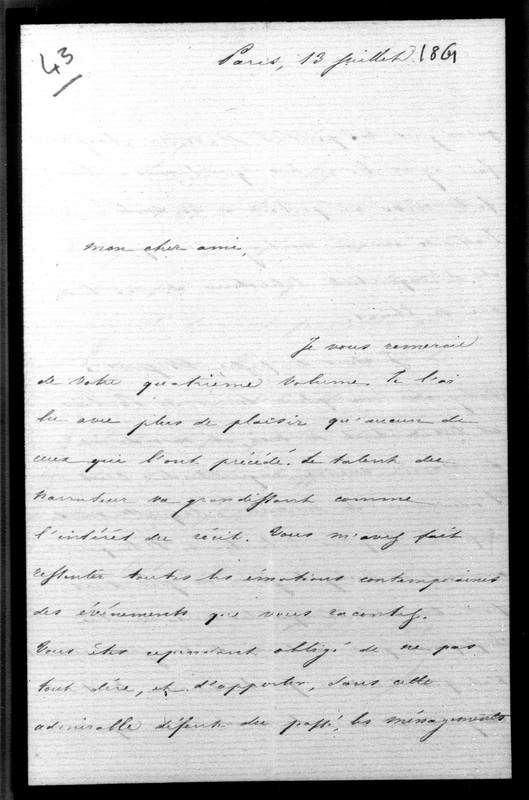 43
Paris, 13 Juillet 1861
mon cher ami,
Je vous remercie
de votre quatrième volume. Je l'ai
lu avec plus de plaisir qu'aucun de
ceux qui l'ont précédé. Le talent du
narrateur va grandissant comme
l'intérêt du récit. Vous m'avez fait
ressentir toutes les émotions contemporaines
des événements que vous racontez.
Vous êtes cependant obligé de ne pas
tout dire, et d'apporter, dans cette
admirable défense du passé, les ménagements